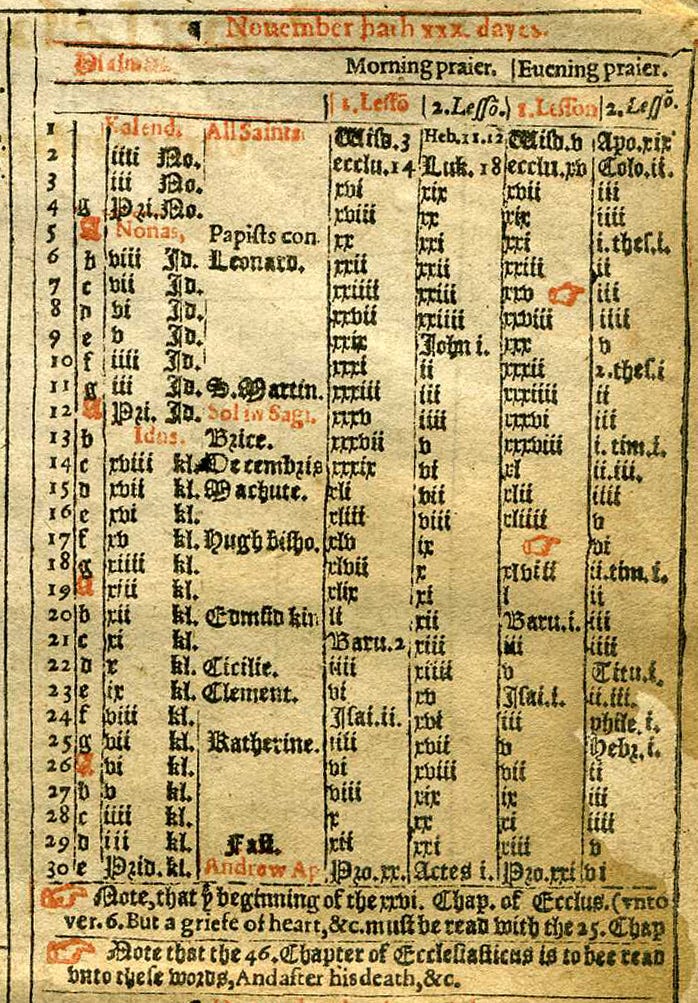 Nouember hath xxx. dayes.
Psalmes. Morning praier. Euening praier.
1.Lessõ 2.Lessõ. 1.Lesson 2.Lessõ.
1 Kalend. All Saints Wisd.3 Heb.11.12 Wisd.v Apo.xix
2 iiii No. ecclu.14 Luk.18 ecclu.xv Colo.ii.
3 iii No. xvi xix xvii iii
4 g Pri.No. xviii xx xix iiii
5 A Nonas, Papists con xx xxi xxi i.thes.i.
6 b viii Id. Leonard. xxii xxii xxiii ii
7 c vii Id. xxiiii xxiii xxv ☞ iii
8 d vi Id. xxvii xxiiii xxviii iiii
9 e v Id. xxix John i. xxx v
10 f iiii Id. xxxi ii xxxii 2.thes.i
11 g iii Id. S.Martin. xxxiii iii xxxiiii ii
12 A Pri. Id. Sol in Sagi. xxxv iiii xxxvi iii
13 b Idus. Brice. xxxvii v xxxviii i.tim.i.
14 c xviii kl. Decembris xxxix vi xl ii.iii.
15 d xvii kl. Machute. xli vii xlii iiii
16 e xvi kl. xliii viii xliiii v
17 f xv kl. Hugh bisho. xlv ix ☞ vi
18 g xiiii kl. xlvii x xlviii ii.tim.i.
19 A xiii kl. xlix xi l ii
20 b xii kl. Edmũd kin li xii Baru.i. iii
21 c xi kl. Baru.2 xiii iii iiii
22 d x kl. Cicilie. iiii xiiii v Titu.i.
23 e ix kl. Clement. vi xv Isai.i. ii.iii.
24 f viii kl. Isai.ii. xvi iii phile.i.
25 g vii kl. Katherine. iiii xvii v Hebr.i.
26 A vi kl. vi xviii vii ii
27 b v kl. viii xix ix iii
28 c iiii kl. x xx xi iiii
29 d iii kl. Fast. xii xxi xiii v
30 e Prid.kl. Andrew Ap Pro.xx. Actes i. Pro.xxi vi
☞ Note, that yͤ beginning of the xxvi. Chap. of Ecclus. (vnto
ver. 6. But a griefe of heart, &c. must be read with the 25. Chap
☞ Note that the 46. Chapter of Ecclesiasticus is to bee read
vnto these words, And after his death, &c.